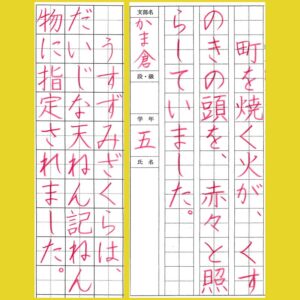 町を焼く火が、くす
のきの頭を、赤々と照
らしていました。
支部名
かま倉
段・級
学年
五
氏名
うすずみざくらは、
だいじな天ねん記ねん
物に指定されました。